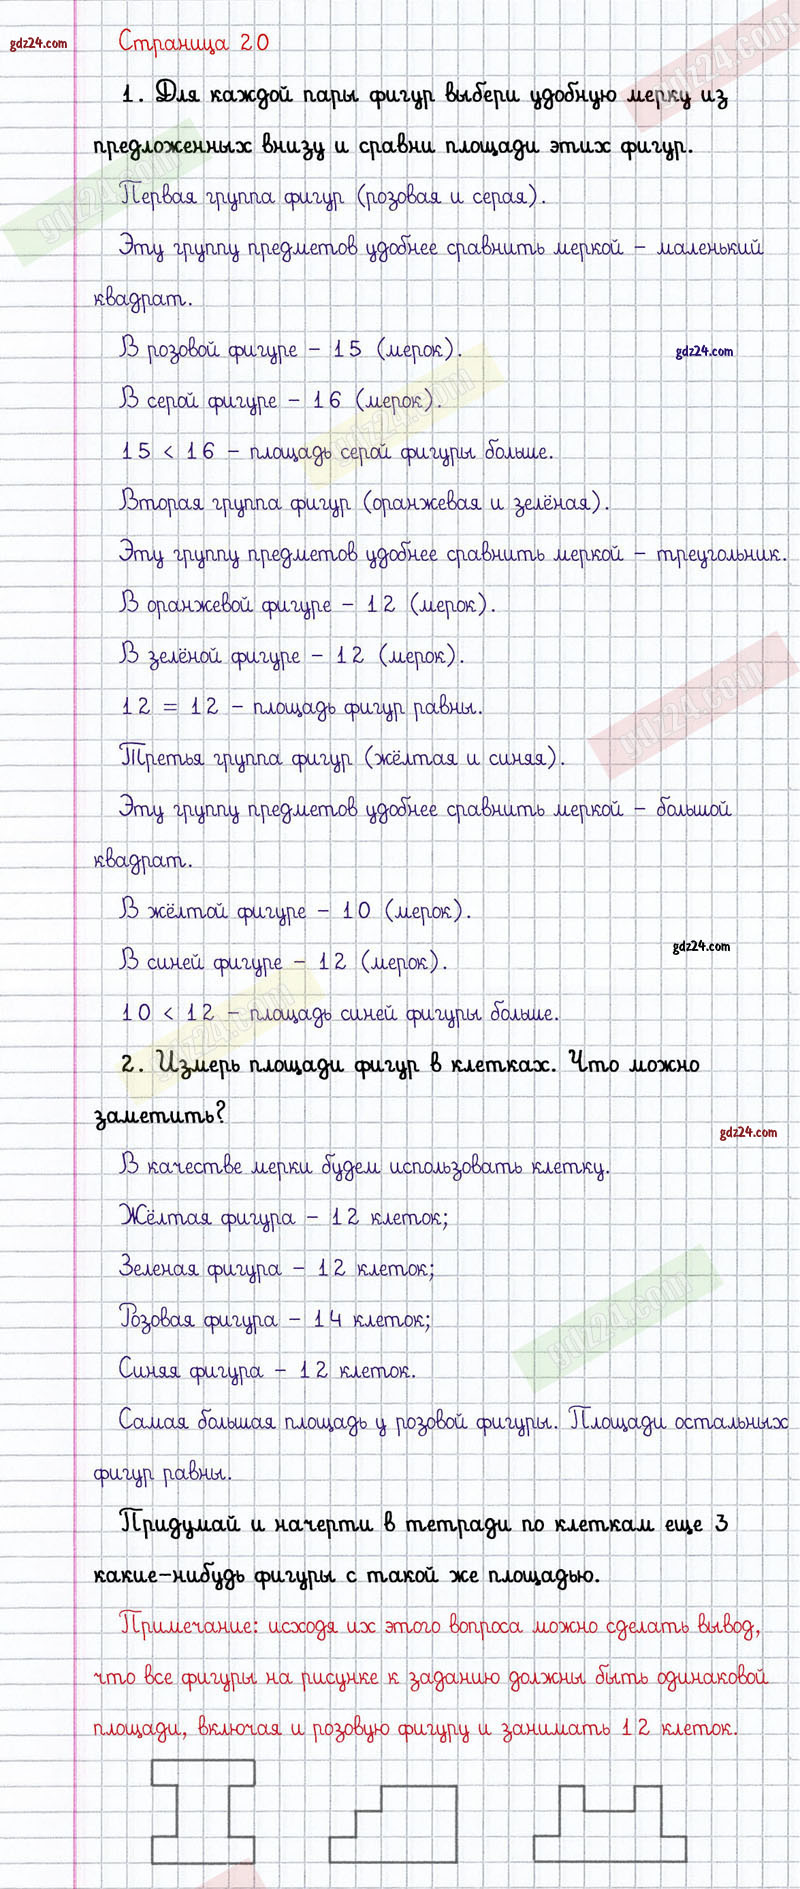 gdz24.com
Страница 20
gdz24.com
1. Для каждой пары фигур выбери удобную мерку из
предложенных внизу и сравни площади этих фигур.
gdz24.com
Первая группа фигур (розовая и серая).
Эту группу предметов удобнее сравнить меркой – маленький
квадрат.
В розовой фигуре – 15 (мерок).
gdz24.com
В серой фигуре – 16 (мерок).
gdz24.com
15 < 16 – площадь серой фигуры больше.
Вторая группа фигур (оранжевая и зелёная).
Эту группу предметов удобнее сравнить меркой – треугольник.
В оранжевой фигуре – 12 (мерок).
В зелёной фигуре – 12 (мерок).
gdz24.com
12 = 12 – площадь фигур равны.
Третья группа фигур (жёлтая и синяя).
Эту группу предметов удобнее сравнить меркой – большой
квадрат.
В жёлтой фигуре – 10 (мерок).
gdz24.com
В синей фигуре – 12 (мерок).
10 < 12 – площадь синей фигуры больше.
gdz24.com
2. Измерь площади фигур в клетках. Что можно
заметить?
gdz24.com
В качестве мерки будем использовать клетку.
Жёлтая фигура – 12 клеток;
Зеленая фигура – 12 клеток;
Розовая фигура – 14 клеток;
gdz24.com
Синяя фигура – 12 клеток.
Самая большая площадь у розовой фигуры. Площади остальных
фигур равны.
Придумай и начерти в тетради по клеткам еще 3
какие-нибудь фигуры с такой же площадью.
Примечание: исходя их этого вопроса можно сделать вывод,
что все фигуры на рисунке к заданию должны быть одинаковой
площади, включая и розовую фигуру и занимать 12 клеток.